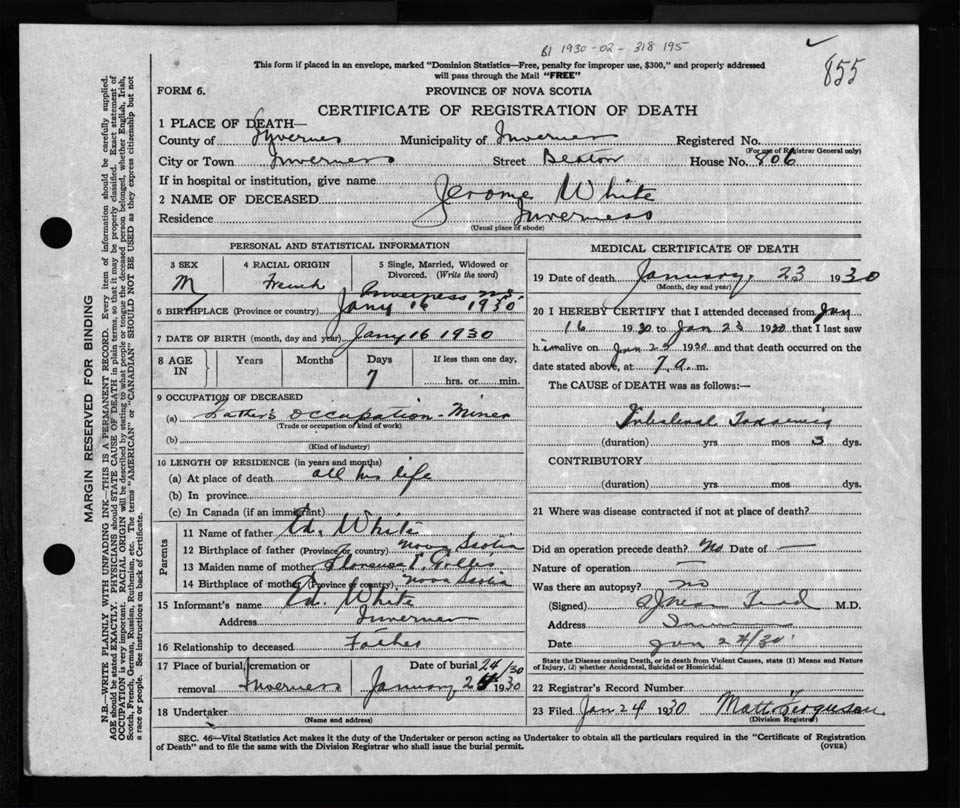 B1 1930-02-318195
855
This form if placed in an envelope, marked "Dominion Statistics—Free, penalty for improper use, $300," and properly addressed
will pass through the Mail "FREE"
FORM 6.
PROVINCE OF NOVA SCOTIA
CERTIFICATE OF REGISTRATION OF DEATH
1 PLACE OF DEATH—
County of Inverness Municipality of Inverness Registered No.
(For use of Registrar General only)
City or Town Inverness Street Beaton House No. 806
If in hospital or institution, give name
2 NAME OF DECEASED Jerome White
Residence Inverness
(Usual place of abode)
PERSONAL AND STATISTICAL INFORMATION
3 SEX 4 RACIAL ORIGIN 5 Single, Married, Widowed or
Divorced. (Write the word)
M French
Inverness N.S.
6 BIRTHPLACE (Province or country) Jany 16 1930
7 DATE OF BIRTH (month, day and year) Jany 16 1930
8 AGE IN Years Months Days If less than one day,
7 hrs. or min.
9 OCCUPATION OF DECEASED
(a) Father's Occupation - Miner
(Trade or occupation or kind of work)
(b)
(Kind of industry)
10 LENGTH OF RESIDENCE (in years and months)
(a) At place of death all his life
(b) In province
(c) In Canada (if an immigrant)
Parents
11 Name of father Ed. White
12 Birthplace of father (Province or country) Nova Scotia
13 Maiden name of mother Florence Gillis
14 Birthplace of mother (Province or country) Nova Scotia
15 Informant's name Ed. White
Address Inverness
16 Relationship to deceased Father
17 Place of burial, cremation or Date of burial 24/30
removal Inverness January 24 1930
18 Undertaker
(Name and address)
MEDICAL CERTIFICATE OF DEATH
19 Date of death January 23 1930
(Month, day and year)
20 I HEREBY CERTIFY that I attended deceased from Jan
16 1930 to Jan 23 1930 that I last saw
him alive on Jan 1930 and that death occurred on the
date stated above, at 7 a. m.
The CAUSE of DEATH was as follows:—
(duration) yrs. mos. 3 dys.
CONTRIBUTORY
(duration) yrs. mos. dys.
21 Where was disease contracted if not at place of death?
Did an operation precede death? No Date of —
Nature of operation —
Was there an autopsy? no
(Signed) M.D.
Address
Date Jan 24/30
State the Disease causing Death, or in death from Violent Causes, state (1) Means and Nature
of Injury, (2) whether Accidental, Suicidal or Homicidal.
22 Registrar's Record Number
23 Filed Jan 24 1930 Matt Ferguson
(Division Registrar)
SEC. 46—Vital Statistics Act makes it the duty of the Undertaker or person acting as Undertaker to obtain all the particulars required in the "Certificate of Registration
of Death" and to file the same with the Division Registrar who shall issue the burial permit.
(OVER)
MARGIN RESERVED FOR BINDING
N.B.—WRITE PLAINLY WITH UNFADING INK—THIS IS A PERMANENT RECORD. Every item of information should be carefully supplied.
AGE should be stated EXACTLY. PHYSICIANS should STATE CAUSE OF DEATH in plain terms, so that it may be properly classified. Exact statement of
OCCUPATION is very important. RACIAL ORIGIN will be described by stating to what people or tongue the deceased person belonged, whether English, Irish,
Scotch, French, German, Russian, Ruthenian, etc. The terms "AMERICAN" or "CANADIAN" SHOULD NOT BE USED as they express citizenship but not
a race or people. See instructions on back of Certificate.